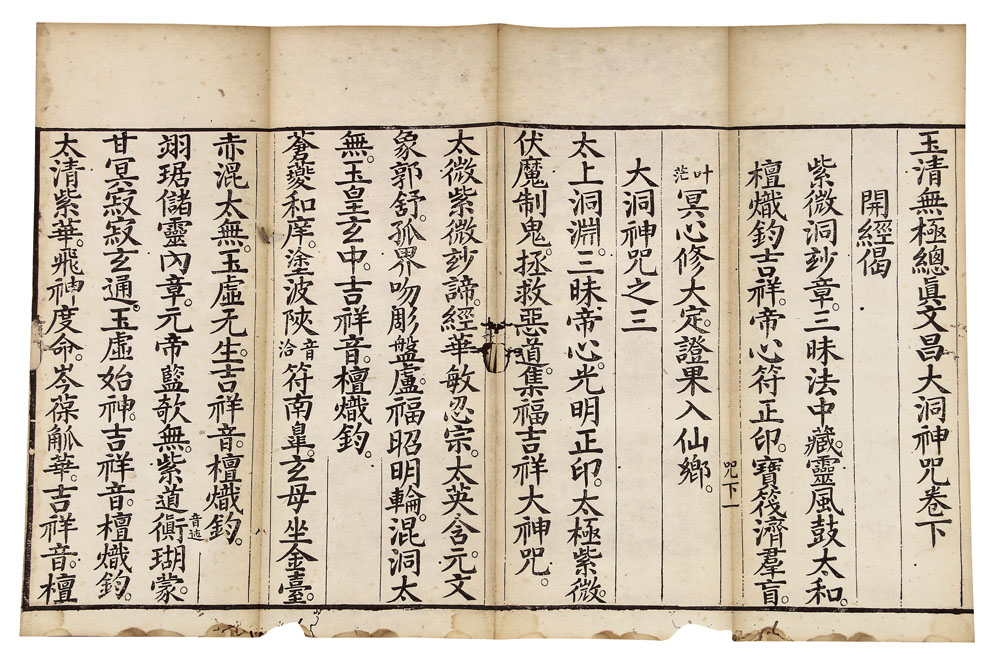 玉清無極總眞文昌大洞神咒卷下
開經偈
紫微洞玅章。三昧法中藏。靈風鼓太和。
檀熾鈞吉祥。帝心符正印。寶筏濟羣盲。
咒下一
叶茫冥心修大定。證果入仙鄉。
大洞神咒之三
太上洞淵。三昧帝心。光明正印。太極紫微。
伏魔制鬼。拯救惡道。集福吉祥大神咒。
太微紫微玅諦。經華敏忍宗。太英含元文
象郭舒。孤界吻彫盤盧。福昭明輪。混洞太
無。玉皇玄中。吉祥音。檀熾鈞。
蒼夔和庠。塗波陜音洽符南皇。玄母坐金臺。
赤混太無。玉虛无生。吉祥音。檀熾鈞。
翊琚儲靈內章。元帝藍欹無。紫道衡音述瑚蒙。
甘冥寂寂玄通。玉虛始神吉祥音。檀熾鈞。
太清紫華。飛神度命。岑葆觚華。吉祥音。檀